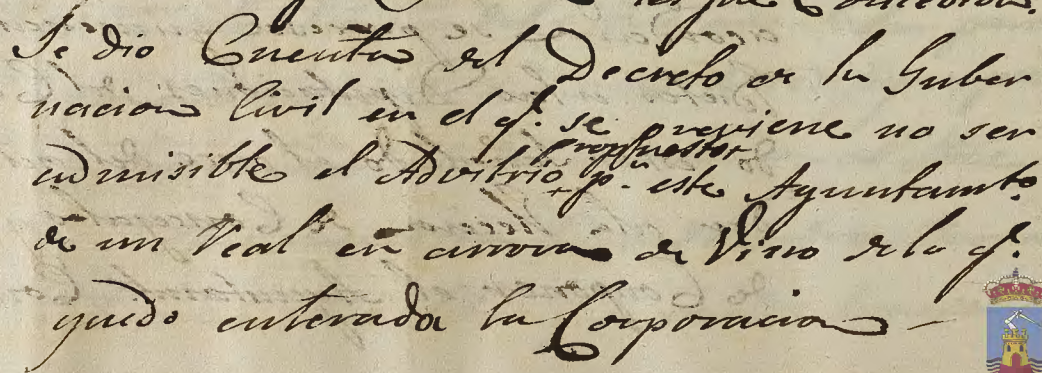 Se dio Cuenta del Decreto de la Guber
nacion Civil en el q.e se previene no ser
admisible el Advitrio propuesto p.r este Ayuntamto.
de un Real en arrova de Vino de lo q.e
quedo enterada la Corporacion